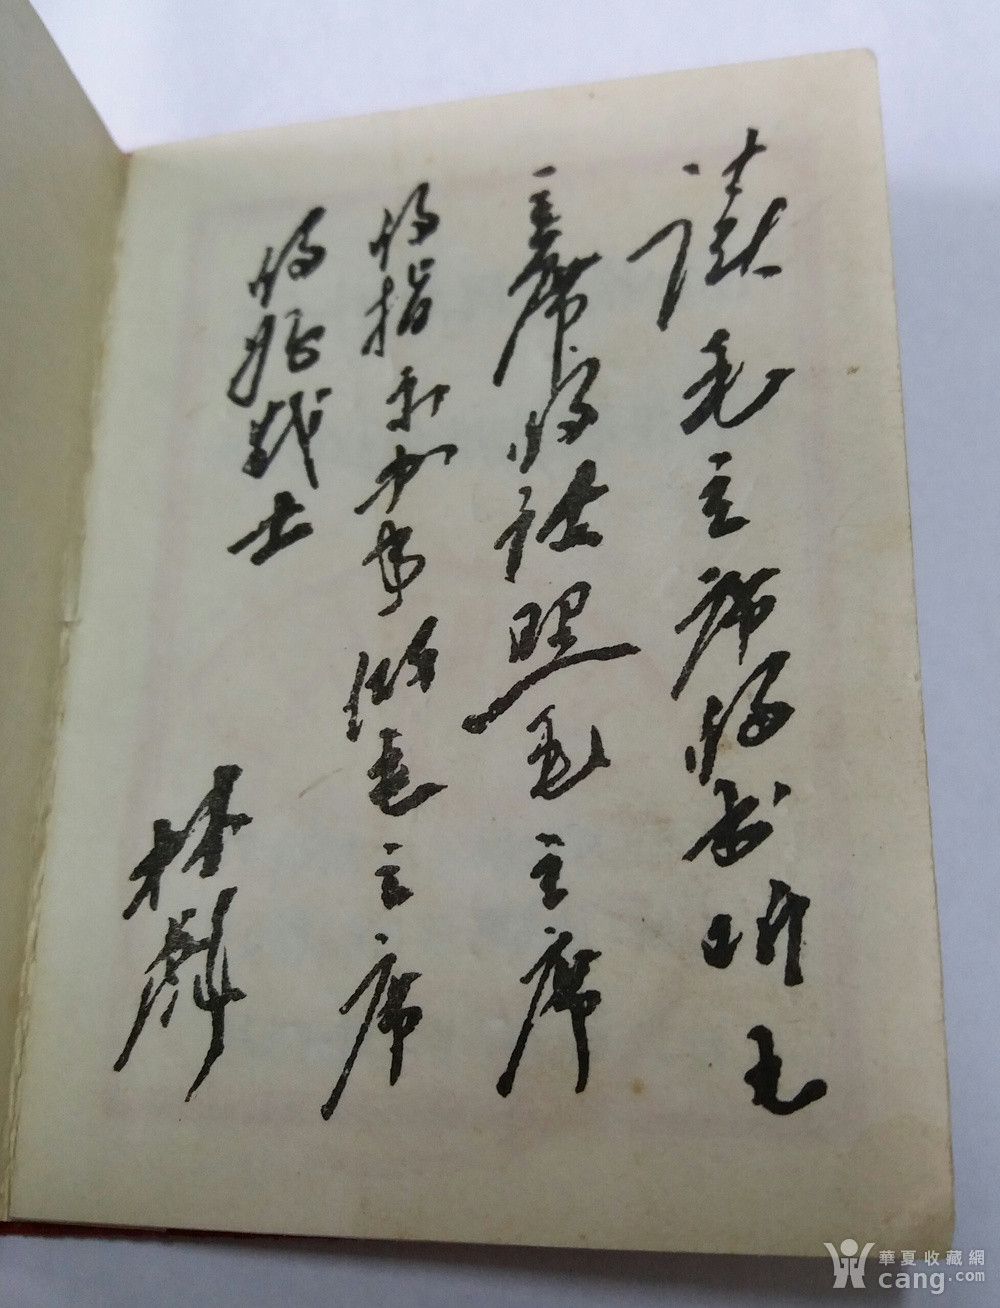 读毛主席的书听毛
主席的话照毛主席
的指示办事做毛主席
的好战士
林彪
華夏收藏網
cang.com